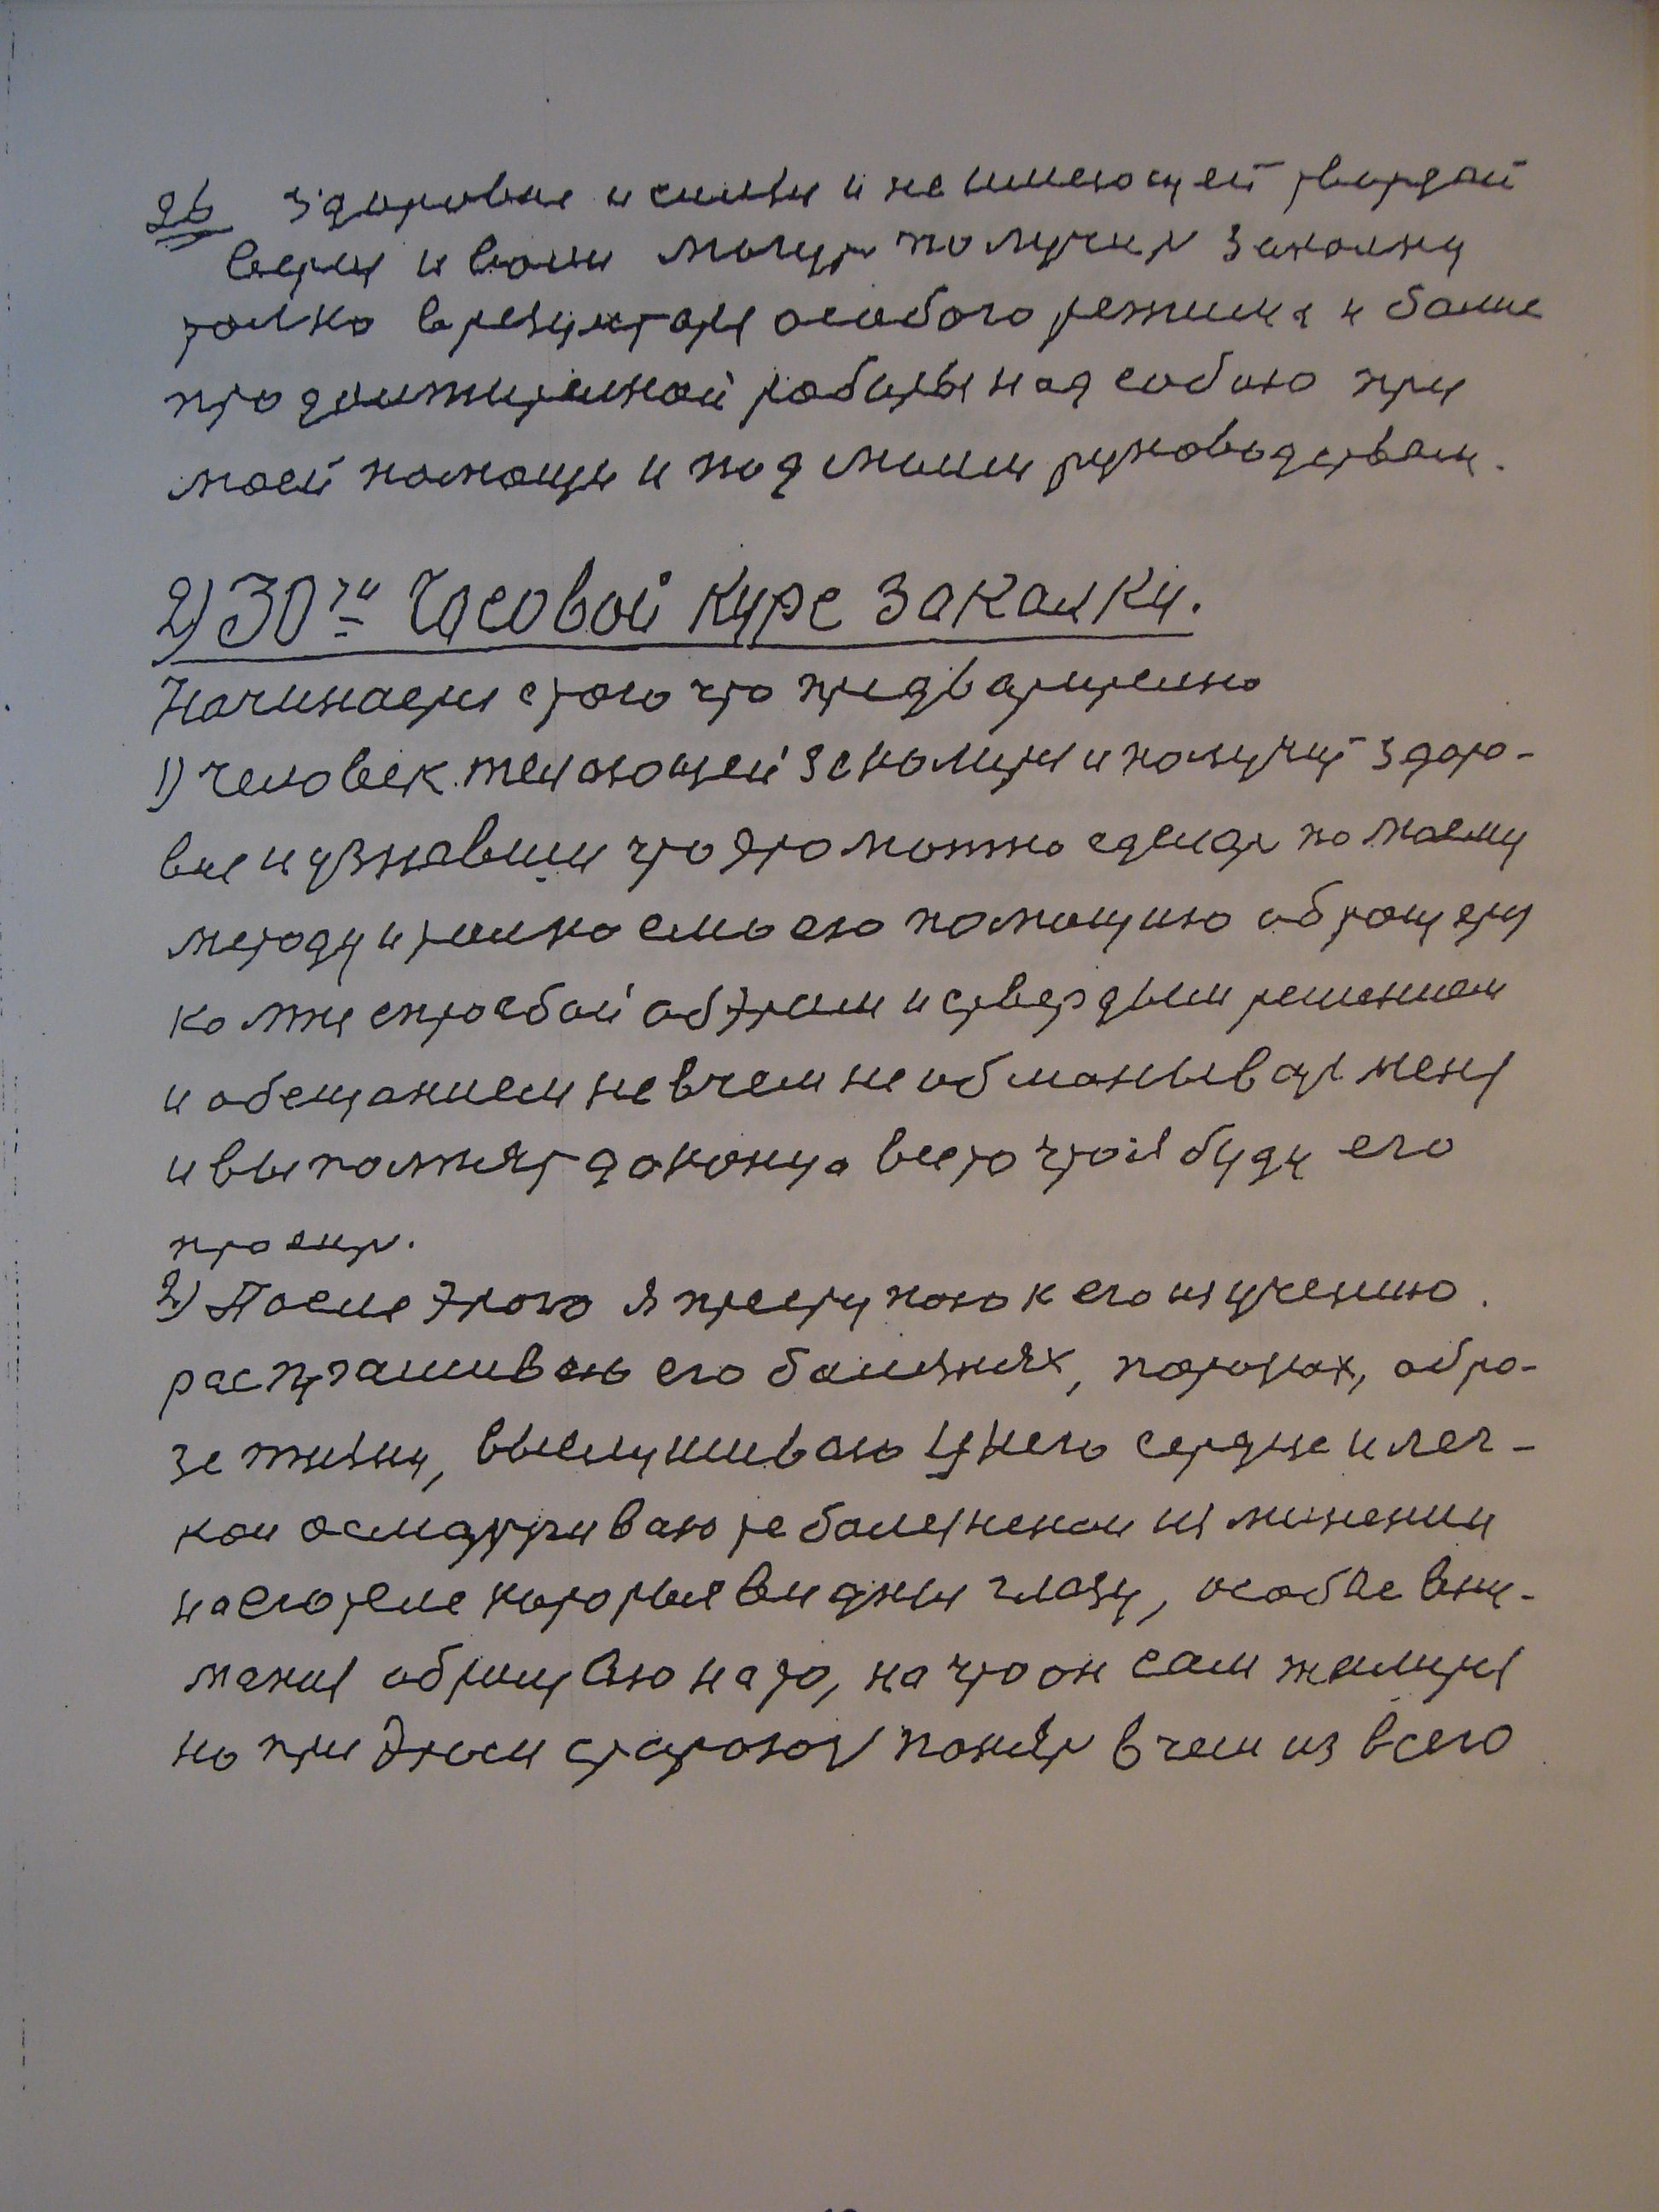 26 здоровие и силы и не имеющей твердой
веры и воли могут получит закалку
толко в резултате особого режима и более
продолжителной работы над собою при
моей помощи и под моим руководством.
2) 30ти Часовой курс закалки.
Начинается стого что предварително
1) человек желающей закалится и получит здоро-
вие и узнавши что это можно сделат по моему
методу и толко смоею помощию обращается
ко мне спросбой об этом и ствердым решением
и обещанием не вчем не обманыват меня
и выполнят доконца все то что я буду его
просит.
2) После этого я преступаю к его изучению.
распрашиваю его болезнях, пороках, обра-
зе жизни, выслушиваю у него сердце и лег-
кои осматриваю те болезненои изменении
на его теле которые видны глазу, особое вни-
мания обращаю на то, на что он сам жалится
но при этом стараюся понят в чем из всего